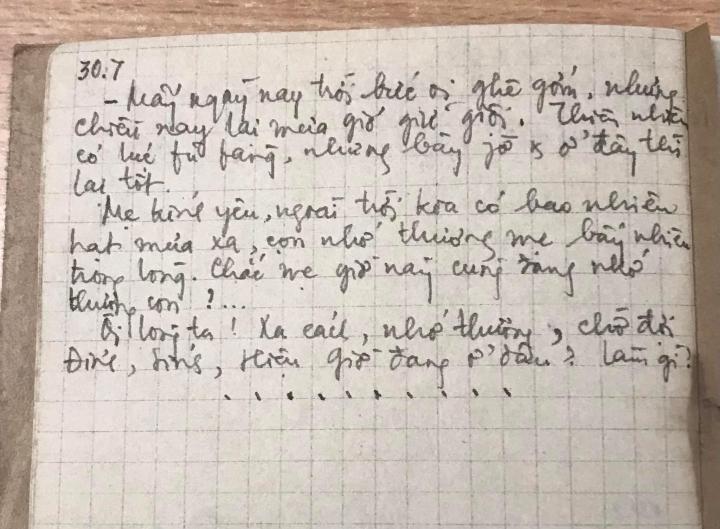 30.7
- Mấy ngày nay trời bức oi ghê gớm, nhưng
chiều nay lại mưa gió giữ giội. Thiên nhiên
có lúc fũ fàng, nhưng bây jờ ở đây thì
lại tốt.
Mẹ kính yêu, ngoài trời kia có bao nhiêu
hạt mưa xa, con nhớ thương mẹ bấy nhiêu
trong lòng. Chắc mẹ giờ này cũng đang nhớ
thương con ?...
Ôi lòng ta ! Xa cách, nhớ thương, chờ đợi
Đính, Hiệu giờ đang ở đâu? làm gì?
. . . . . . . . . .